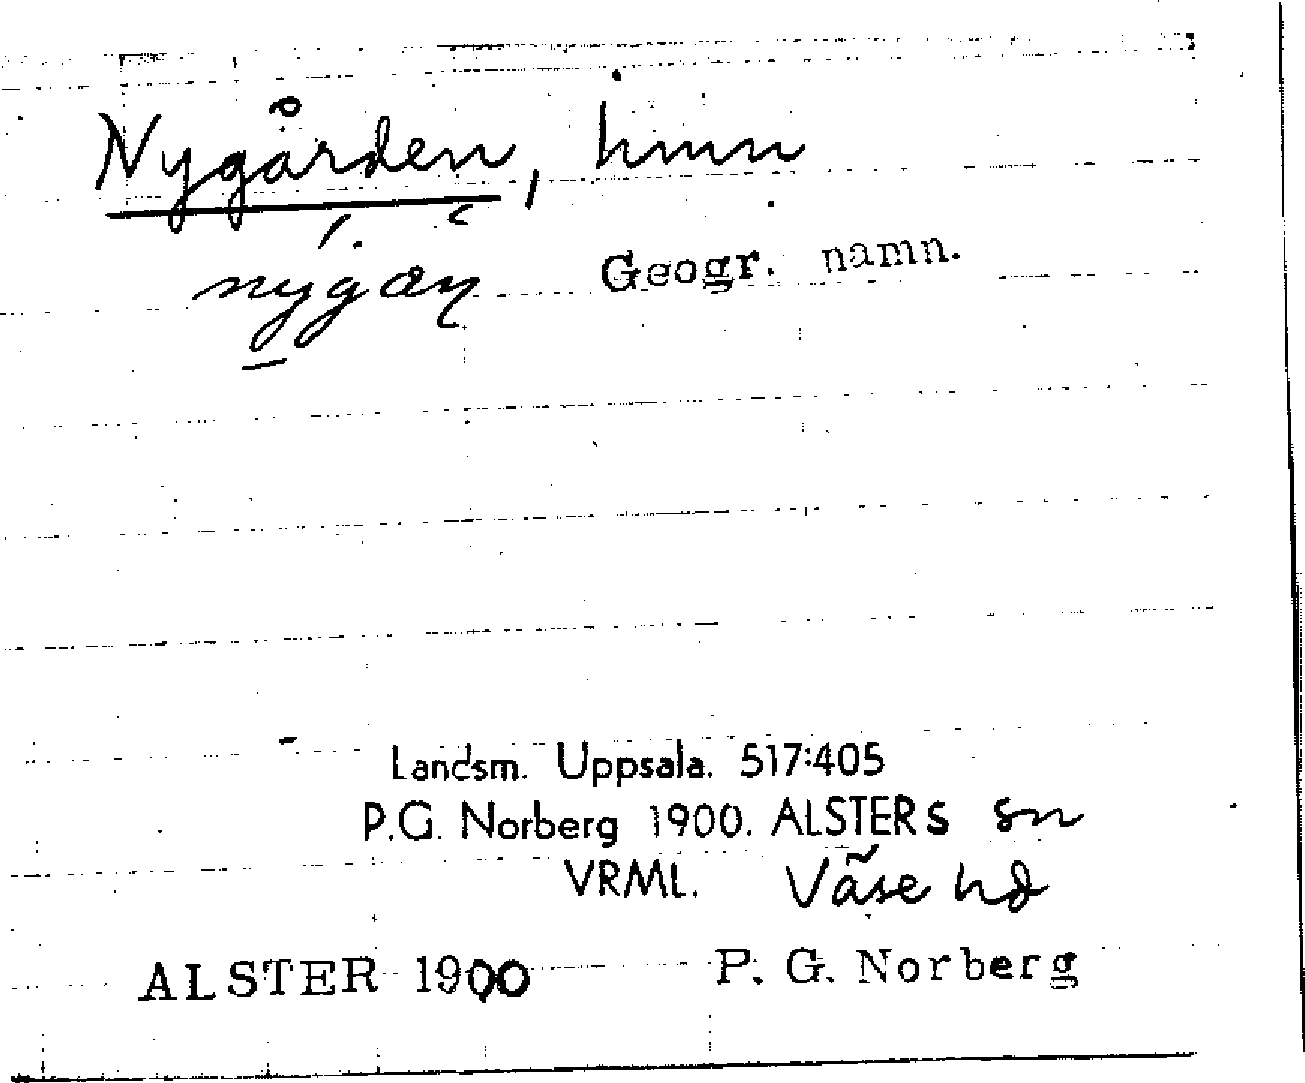 Nygården, hmn
Geogr. namn.
Landsm. Uppsala. 517:405
P.G. Norberg 1900. ALSTERS sn
VRML. Väse hd
ALSTER 1900 P. G. Norberg